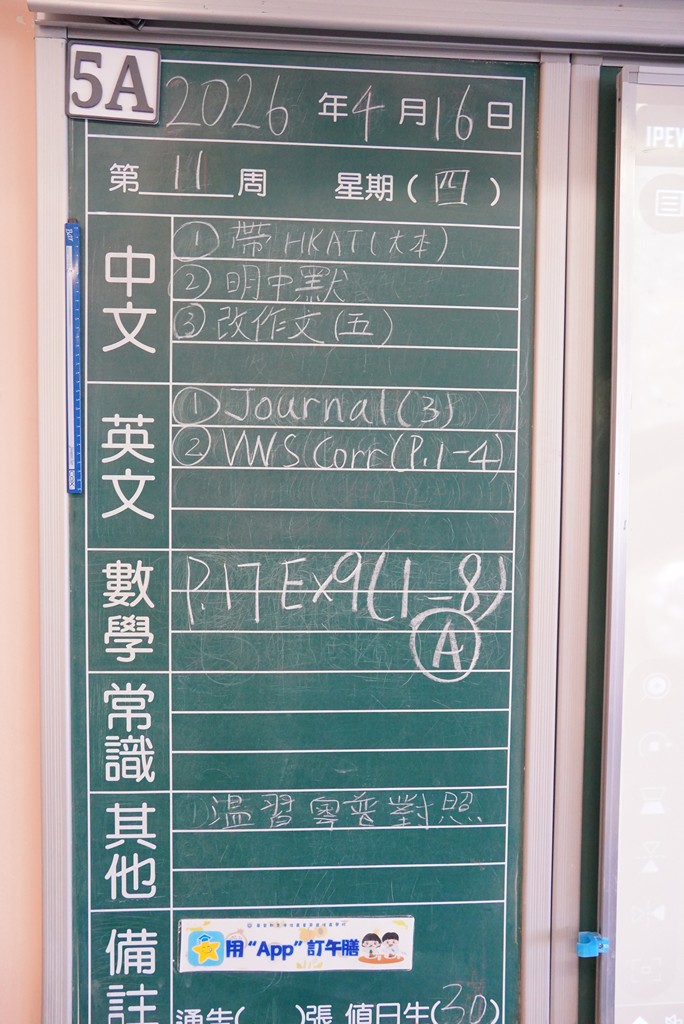 5A
2026 年 4 月 16 日
第 11 周 星期(四)
中文
① 帶 HKAT(大本)
② 明中默
③ 改作文(五)
英文
① Journal(3)
② VWS Corr(P.1-4)
數學
P.17 Ex9(1-8)
A
常識
其他
① 溫習粵普對照
備註
用“App”訂午膳
通告( )張 值日生(30)
IPEV